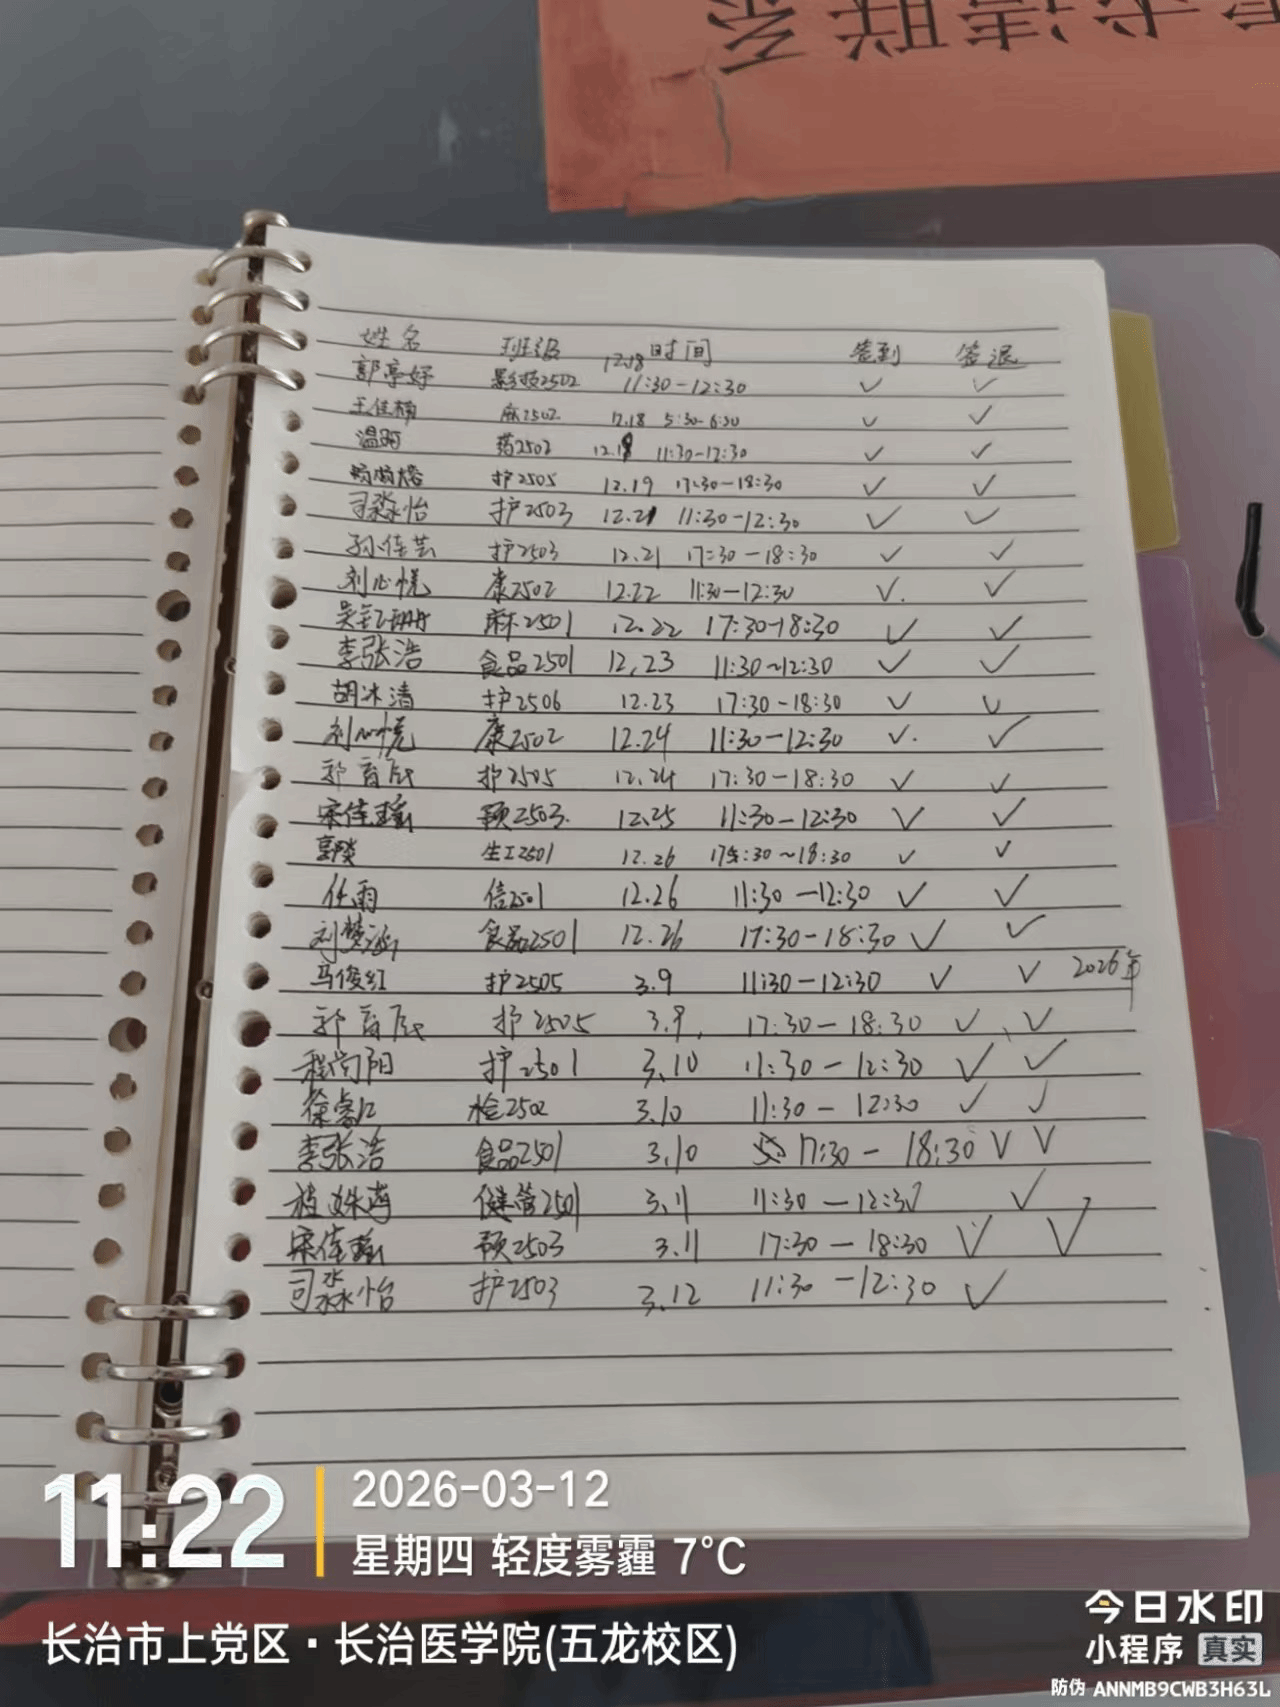 姓名 班级 时间 签到 签退
郭亭妤 影技2502 12.18 11:30-12:30 ✓ ✓
王佳楠 麻2502 12.18 5:30-6:30 ✓ ✓
温 药2502 12.18 11:30-12:30 ✓ ✓
护2505 12.19 17:30-18:30 ✓ ✓
司淼怡 护2503 12.21 11:30-12:30 ✓ ✓
孙佳芸 护2503 12.21 17:30-18:30 ✓ ✓
刘心悦 康2502 12.22 11:30-12:30 ✓ ✓
麻2501 12.22 17:30-18:30 ✓ ✓
李张浩 食品2501 12.23 11:30~12:30 ✓ ✓
胡冰清 护2506 12.23 17:30-18:30 ✓ ✓
刘心悦 康2502 12.24 11:30-12:30 ✓ ✓
郭育辰 护2505 12.24 17:30-18:30 ✓ ✓
宋佳瑶 预2503. 12.25 11:30-12:30 ✓ ✓
生工2501 12.26 17:30~18:30 ✓ ✓
任雨 信2501 12.26 11:30-12:30 ✓ ✓
刘梦 食品2501 12.26 17:30-18:30 ✓ ✓
马俊红 护2505 3.9 11:30-12:30 ✓ ✓ 2026年
郭育辰 护2505 3.9 17:30-18:30 ✓ ✓
程向阳 护2501 3.10 11:30-12:30 ✓ ✓
徐睿 检2502 3.10 11:30-12:30 ✓ ✓
李张浩 食品2501 3.10 17:30-18:30 ✓ ✓
健管2501 3.11 11:30-12:3 ✓ ✓
宋佳瑶 预2503 3.11 17:30-18:30 ✓ ✓
司淼怡 护2503 3.12 11:30-12:30 ✓
11:22
2026-03-12
星期四 轻度雾霾 7°C
长治市上党区·长治医学院(五龙校区)
今日水印
小程序 真实
防伪 ANNMB9CWB3H63L